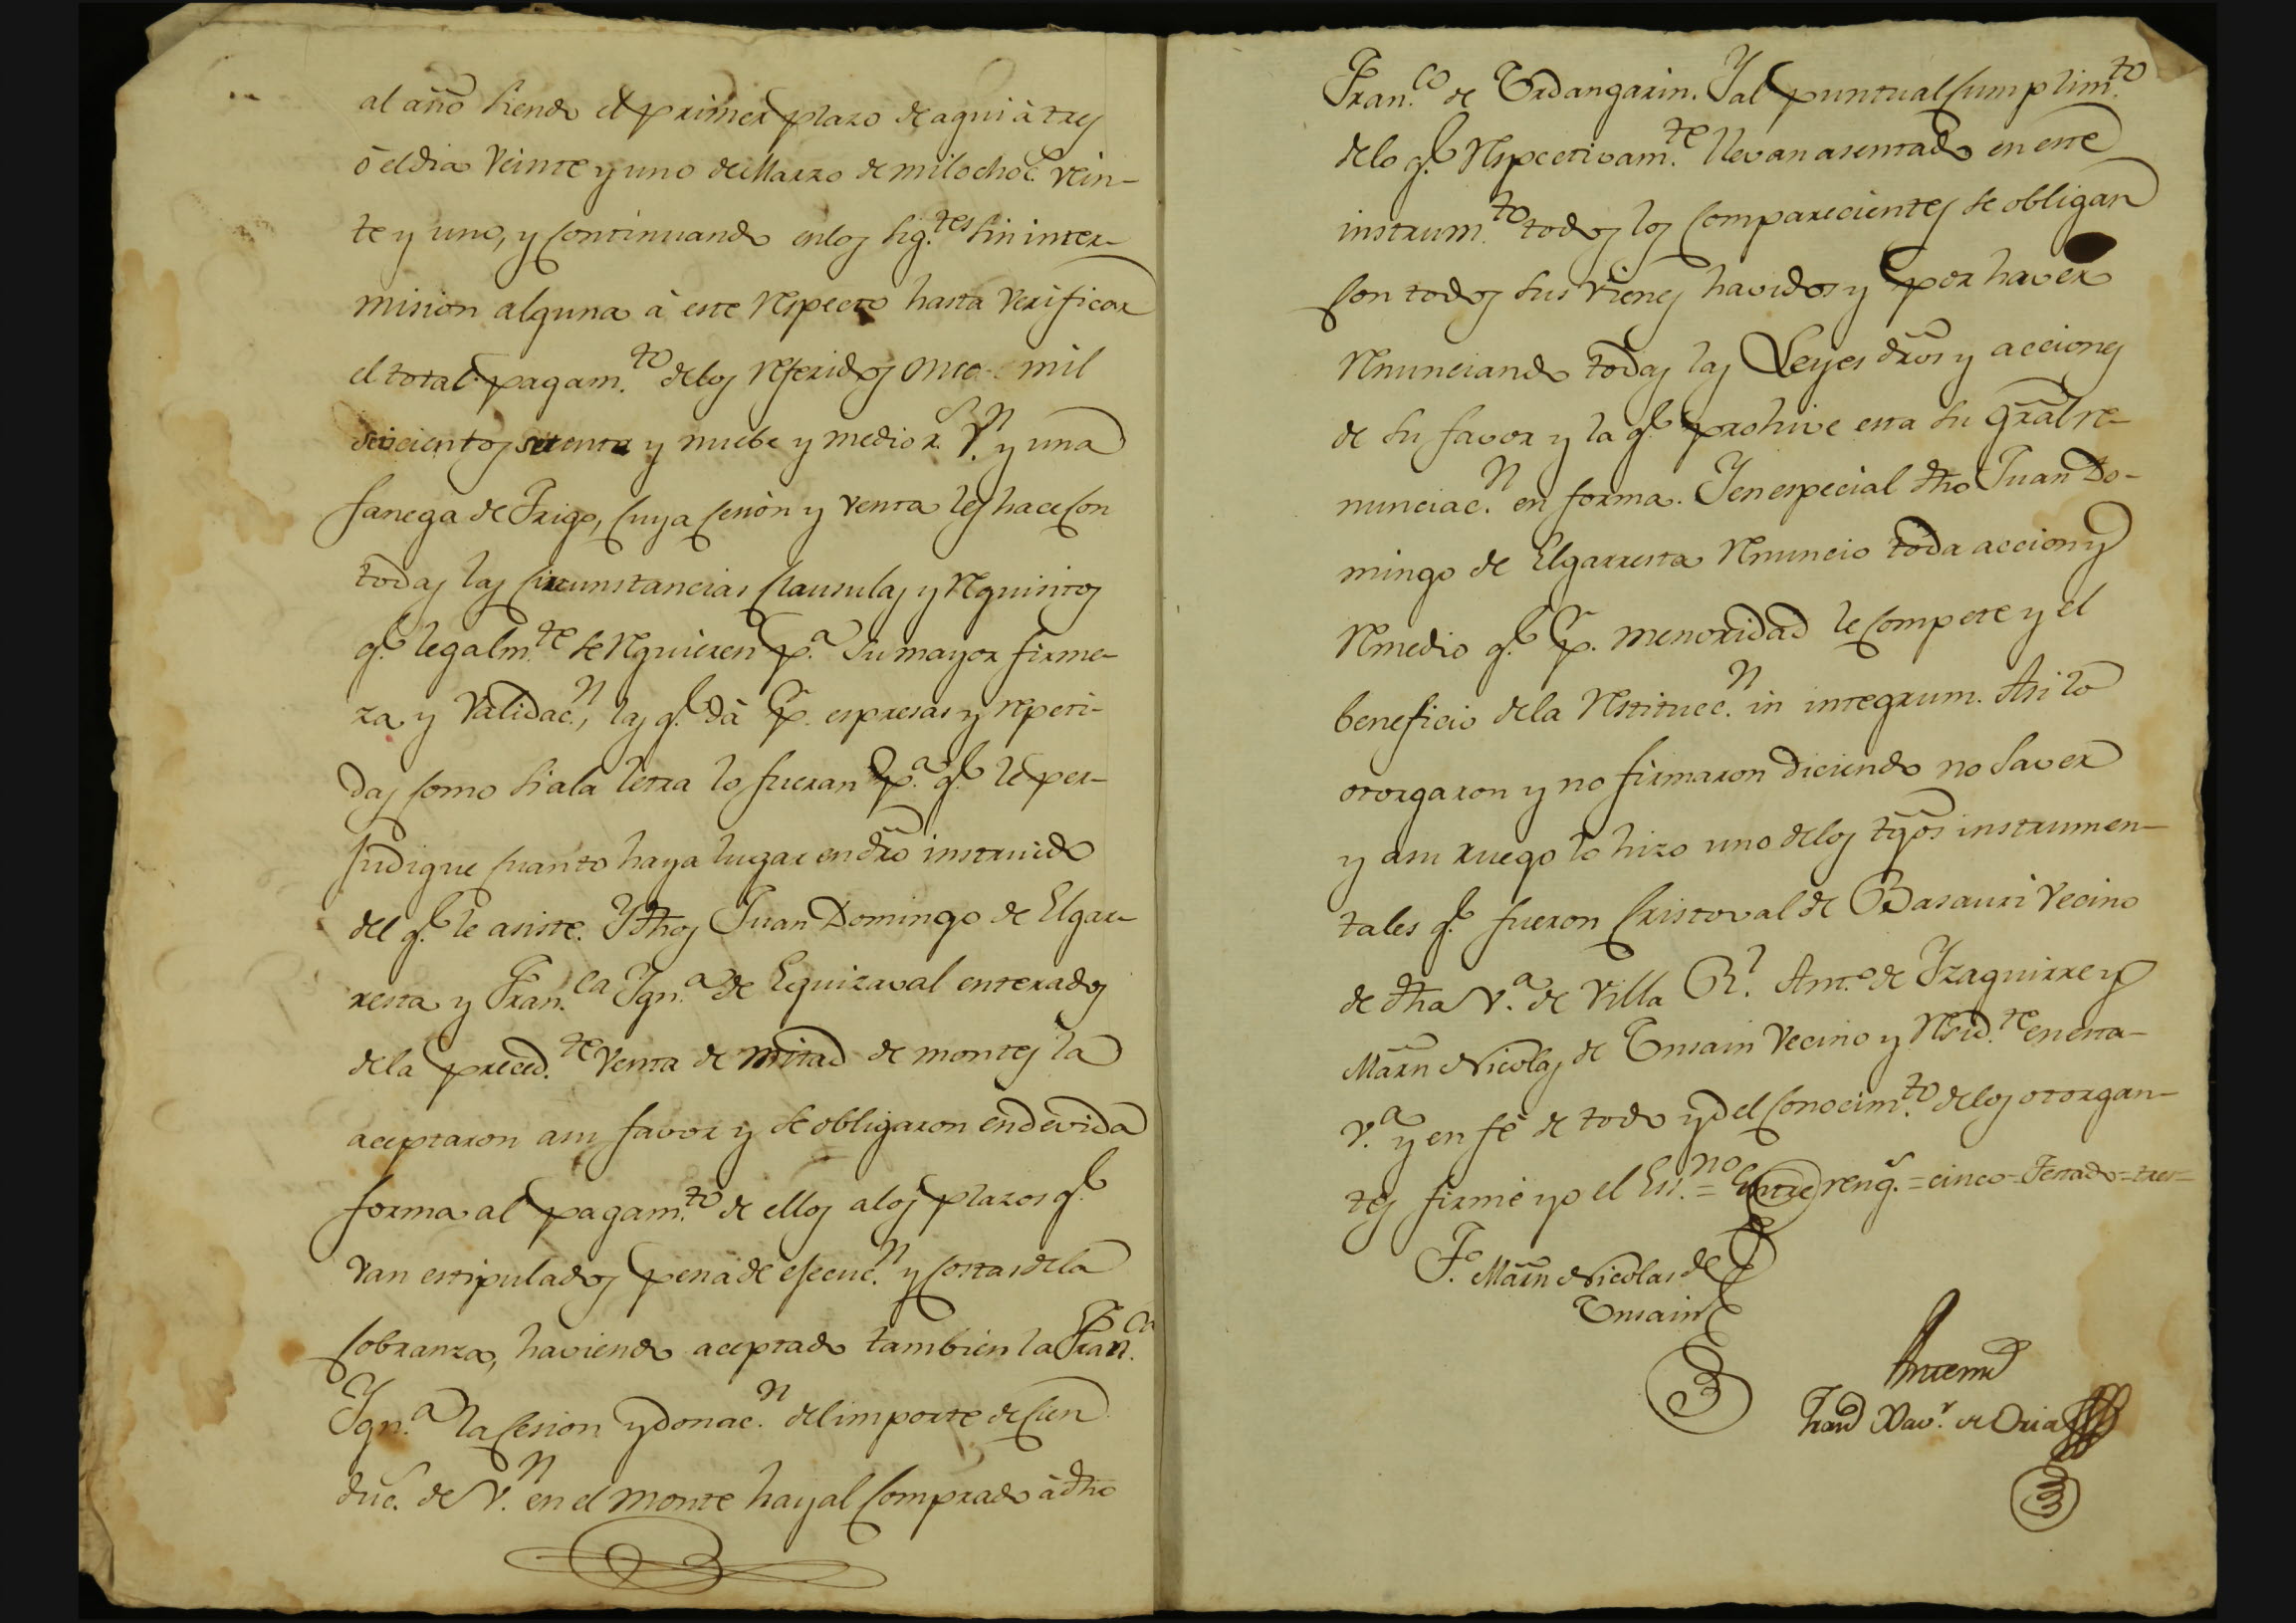 al año siendo el primer plazo de aqui à tres
ò el dia veinte y uno de Marzo de mil ochoc.s vein-
te y uno, y continuando en los sig.tes sin inter-
mision alguna à este respecto hasta verificar
el total pagam.to de los referidos once mil
seiscientos setenta y nuebe y medio r.s V.n y una
fanega de Trigo, cuya cesiòn y venta les hace con
todas las circunstancias clausulas y requisitos
q.e legalm.te se requieren p.a su mayor firme-
za y validac.n, las q.e dà p.r espresas y repeti-
das como si a la letra lo fueran p.a q.e le per-
judique cuanto haya lugar en dro instruido
del q.e le asiste. Y dhos Juan Domingo de Elgar-
resta y Fran.ca Ygn.a de Eguizaval enterados
de la preced.te venta de mitad de montes la
aceptaron a su favor y se obligaron en devida
forma al pagam.to de ellos a los plazos q.e
van estipulados pena de ejecuc.n y costas de la
cobranza, haviendo aceptado tambien la Fran.ca
Ygn.a la cesion y donac.n del importe de cien
duc.s de V.n en el monte hayal comprado à dho
Fran.co de Urdangarin. Y al puntual cumplim.to
de lo q.e respectivam.te llevan asentado en este
instrum.to todos los comparecientes se obligan
con todos sus vienes havidos y por haver
renunciando todas las Leyes dros y acciones
de su favor y la q.e prohive esta su gral re-
nunciac.n en forma. Y en especial dho Juan Do-
mingo de Elgarresta renuncio toda accion y
remedio q.e p.r menoridad le compete y el
beneficio de la restituc.n in integrum. Asi lo
otorgaron y no firmaron diciendo no saver
y a su ruego lo hizo uno de los tgos instrumen-
tales q.e fueron Cristoval de Basauri vecino
de dha V.a de Villa R.l Ant.o de Yzaguirre y
Marn Nicolas de Unsain vecino y resid.te en esta
V.a y en fè de todo y del conocim.to de los otorgan-
tes firmè yo el Es.no = Entre reng.s = cinco = Testado = tres =
T.o Marn Nicolas de
Unsain
Antemi
Fran.co Xav.r de Oria